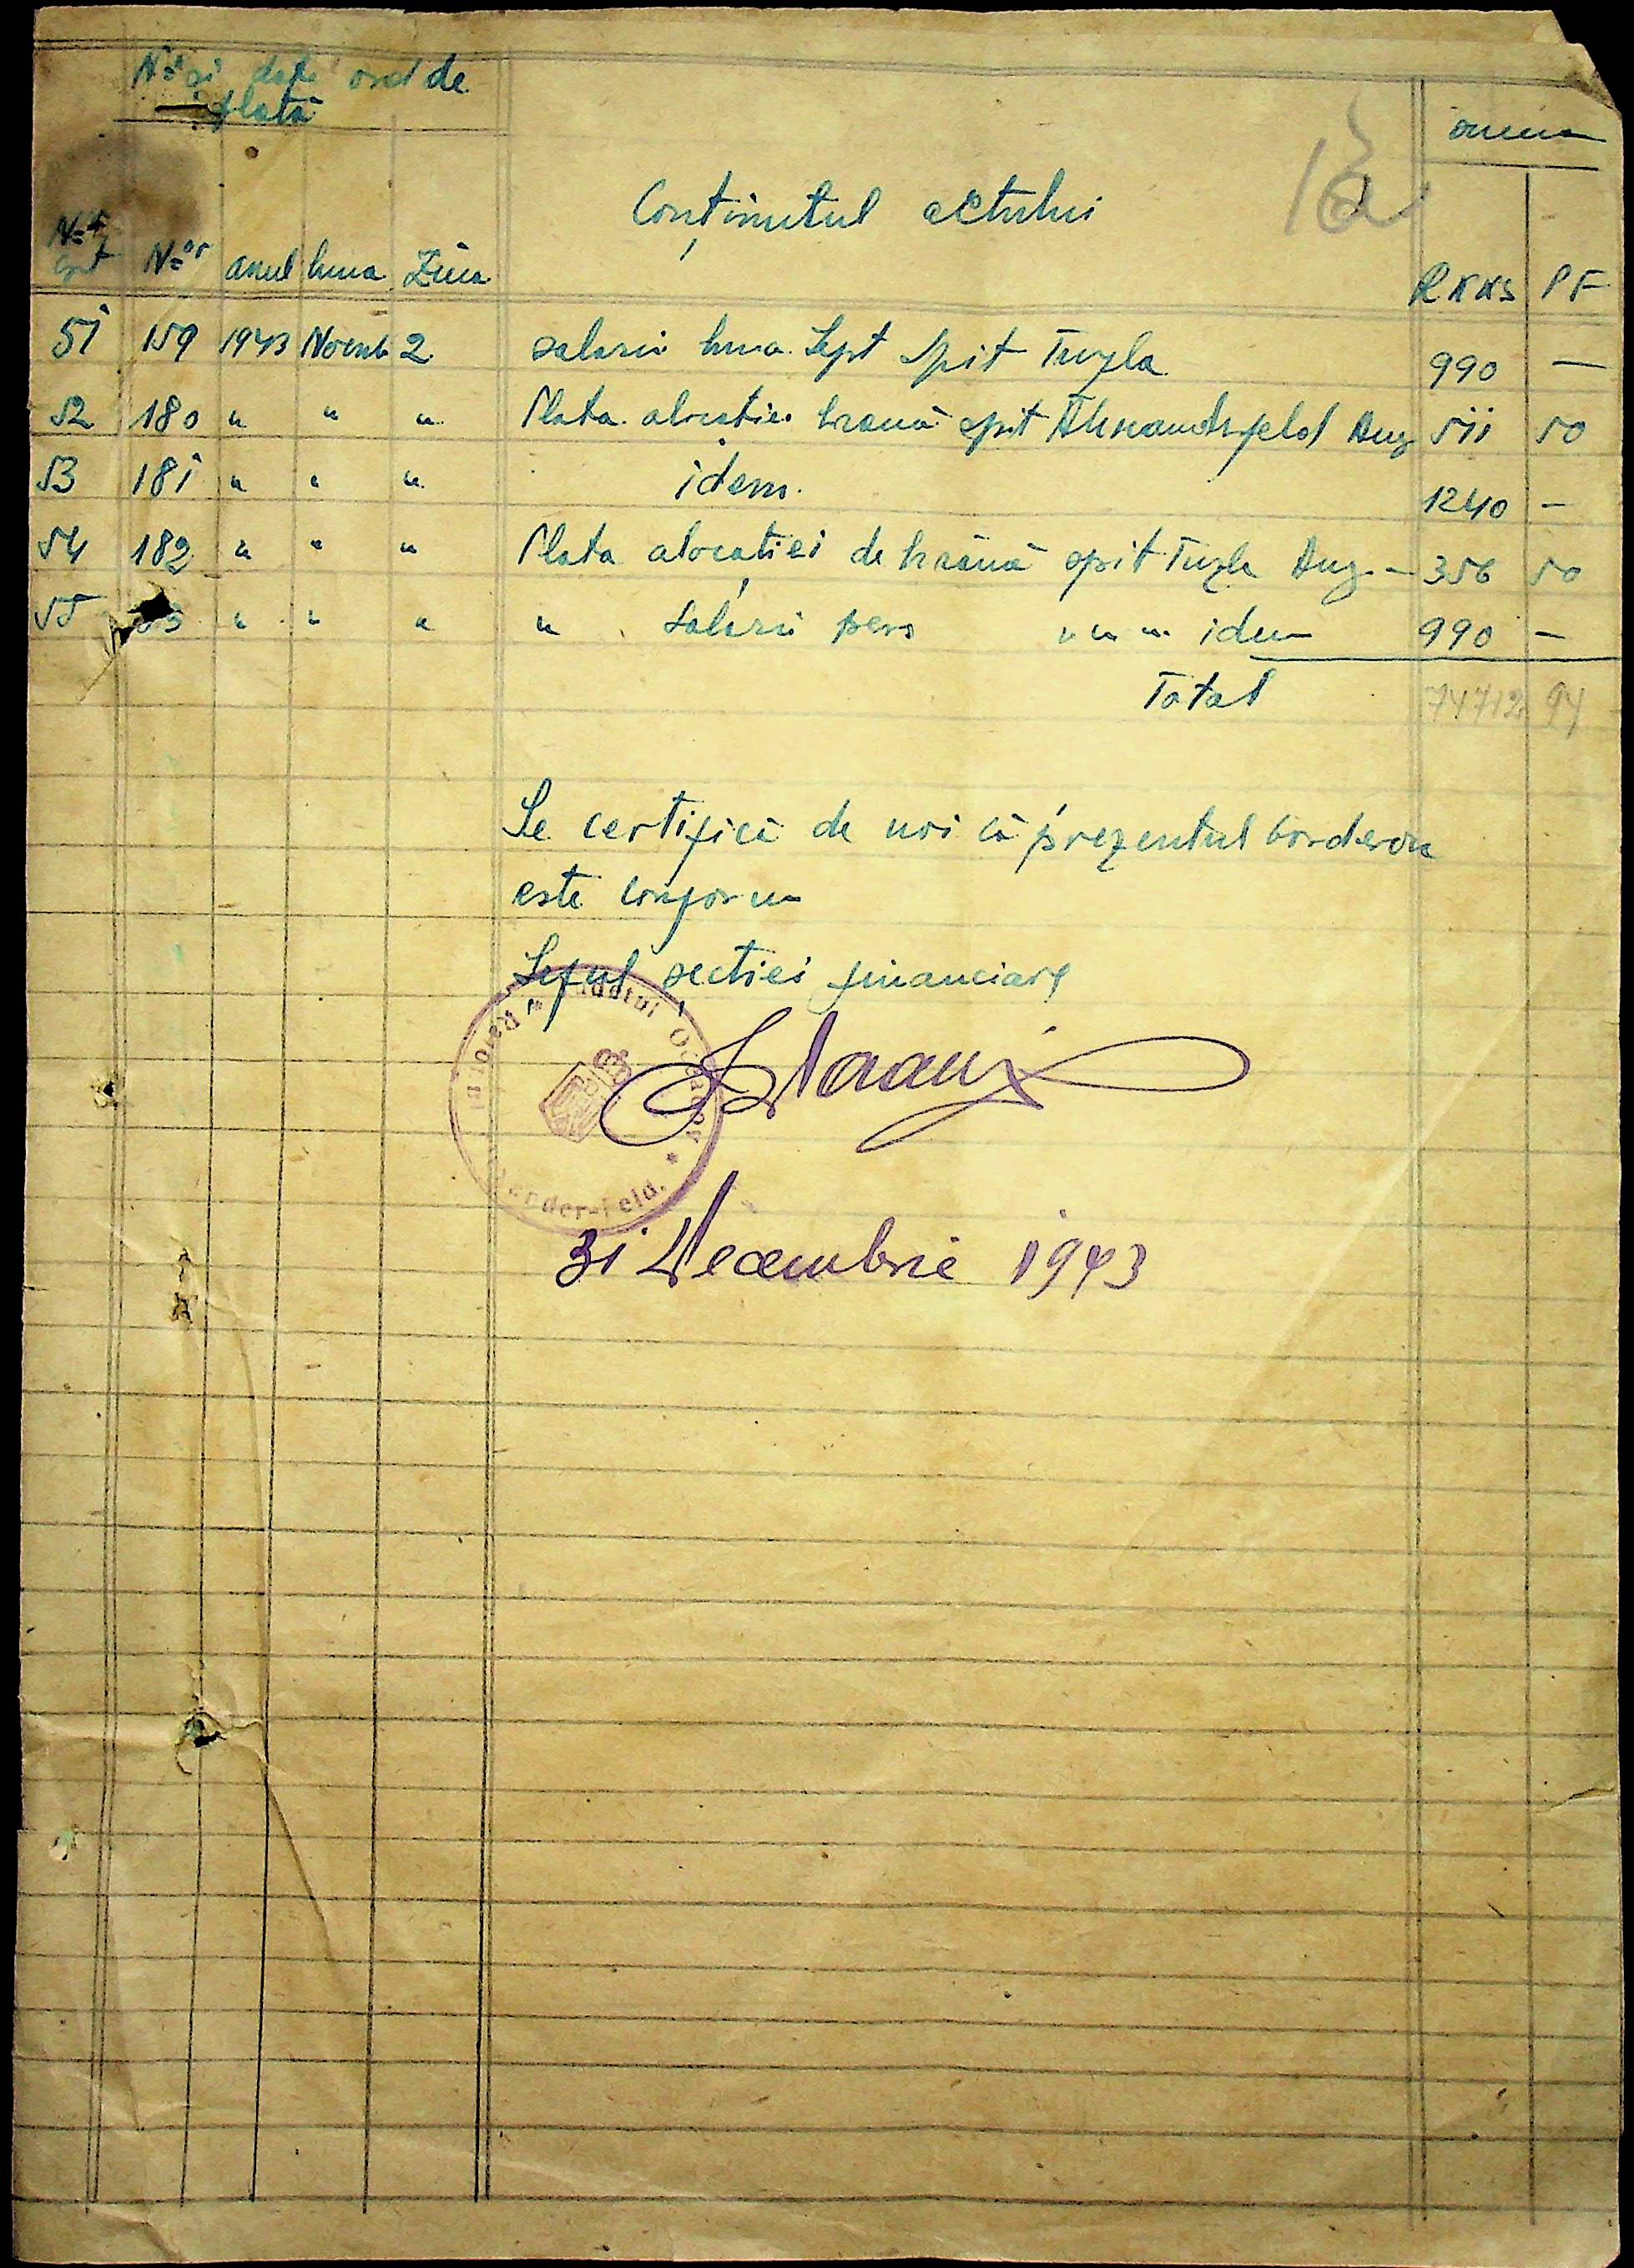 No și data ord de
plată
suma
13
Conținutul actului
No crt No anul luna Ziua RKKS PF
51 159 1943 Noemb 2 salarii luna Sept spit Tuzla 990 —
52 180 " " " Plata alocatiei hrană spit Alexandrfeld Aug 511 50
53 181 " " " idem 1240 —
54 182 " " " Plata alocatiei de hrănă spit Tuzla Aug — 356 50
55 " " " " salarii pers " " " idem 990 —
Total 74712 94
Se certifică de noi că prezentul borderou
este conform
Șeful secției financiare
31 Decembrie 1943